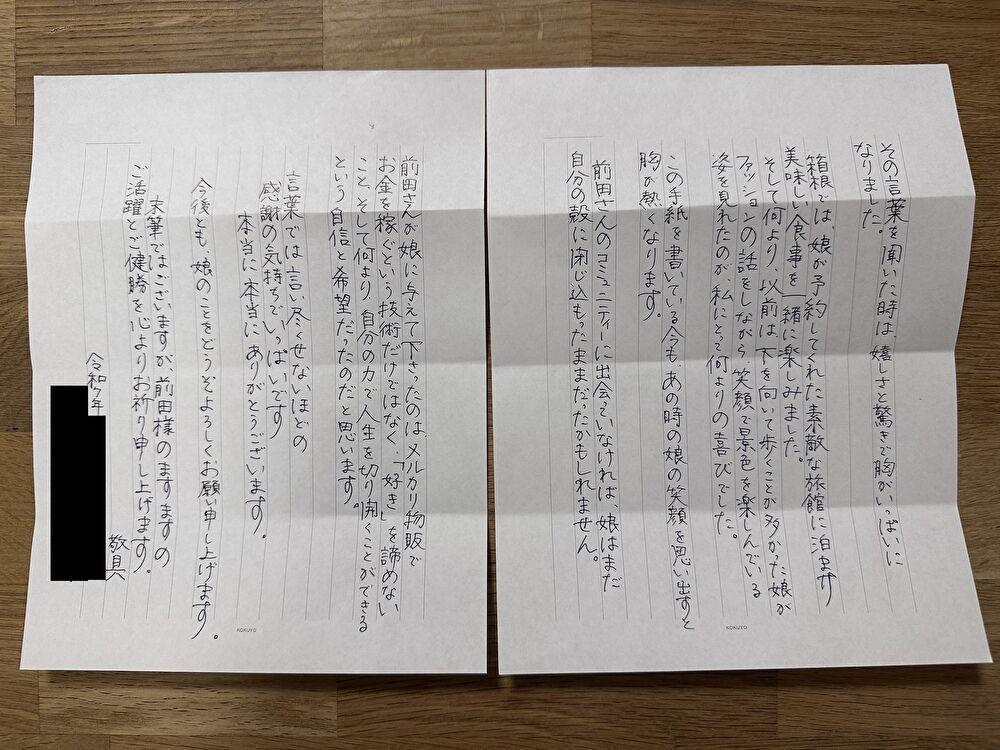 その言葉を聞いた時は、嬉しさと驚きで胸がいっぱいに
なりました。
箱根では、娘が予約してくれた素敵な旅館に泊まり
美味しい食事を一緒に楽しみました。
そして何より、以前は、下を向いて歩くことが多かった娘が
ファッションの話をしながら笑顔で景色を楽しんでいる
姿を見れたのが、私にとって何よりの喜びでした。
この手紙を書いている今も、あの時の娘の笑顔を思い出すと
胸が熱くなります。
前田さんのコミュニティーに出会っていなければ、娘はまだ
自分の殻に閉じ込もったままだったかもしれません。
KOKUYO
前田さんが娘に与えて下さったのは、メルカリ物販で
お金を稼ぐという技術だけではなく、「好き」を諦めない
こと、そして何より、自分の力で人生を切り開くことができる
という自信と希望だったのだと思います。
言葉では言い尽くせないほどの
感謝の気持ちでいっぱいです
本当に本当にありがとうございます。
今後とも娘のことをどうぞよろしくお願い申し上げます。
末筆ではございますが、前田様のますますの
ご活躍とご健勝を心よりお祈り申し上げます。
敬具
令和7年
KOKUYO